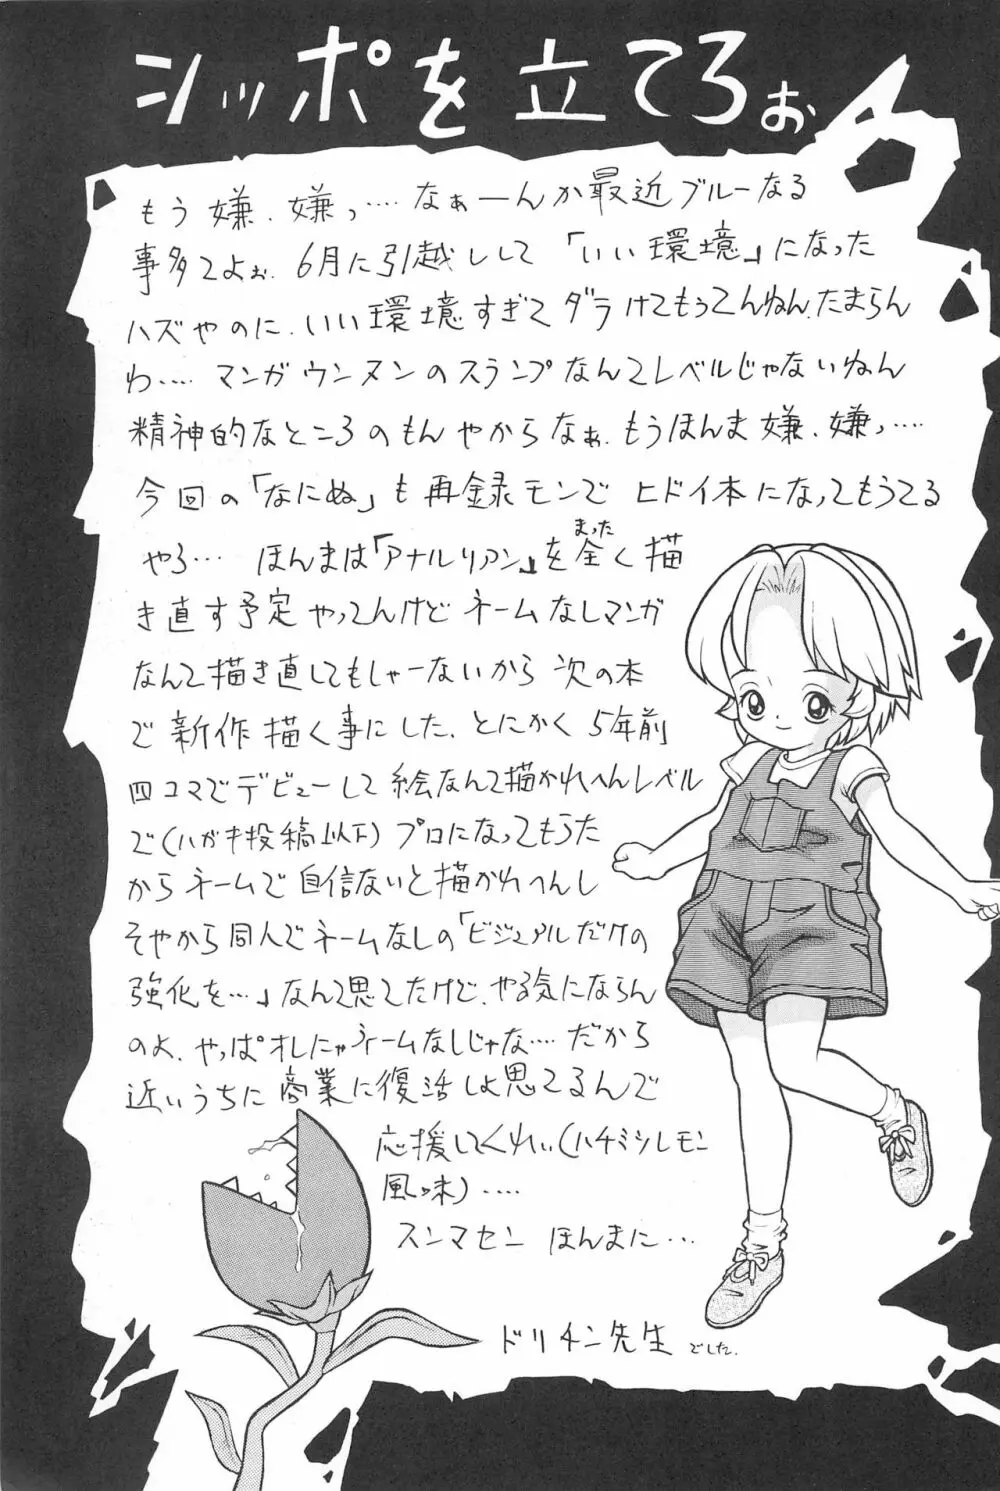 シッポを立てろぉ
もう嫌、嫌っ‥‥なぁーんか最近ブルーなる
事多てよぉ、6月に引越しして「いい環境」になった
ハズやのに、いい環境すぎてダラけてもうてんねん、たまらん
わ‥‥マンガウンヌンのスランプなんてレベルじゃないねん
精神的なところのもんやからなぁ、もうほんま嫌、嫌っ‥‥
今回の「なにぬ」も再録モンで ヒドイ本になってもうてる
やろ‥‥ ほんまは「アナルリアン」を全く描
まった
き直す予定やってんけど ネームなしマンガ
なんて描き直してもしゃーないから 次の本
で新作描く事にした、とにかく 5年前
四コマでデビューして絵なんて描かれへんレベル
で(ハガキ投稿以下)プロになってもうた
からネームで自信ないと描かれへんし
そやから同人でネームなしの「ビジュアルだけの
強化を‥‥」なんて思てたけど、やる気にならん
のよ、やっぱオレにゃネームなしじゃな‥‥だから
近いうちに商業に復活しよ思てるんで
応援してくれぃ(ハチミツレモン
風味)‥‥
スンマセン ほんまに‥‥
ドリチン先生 でした.